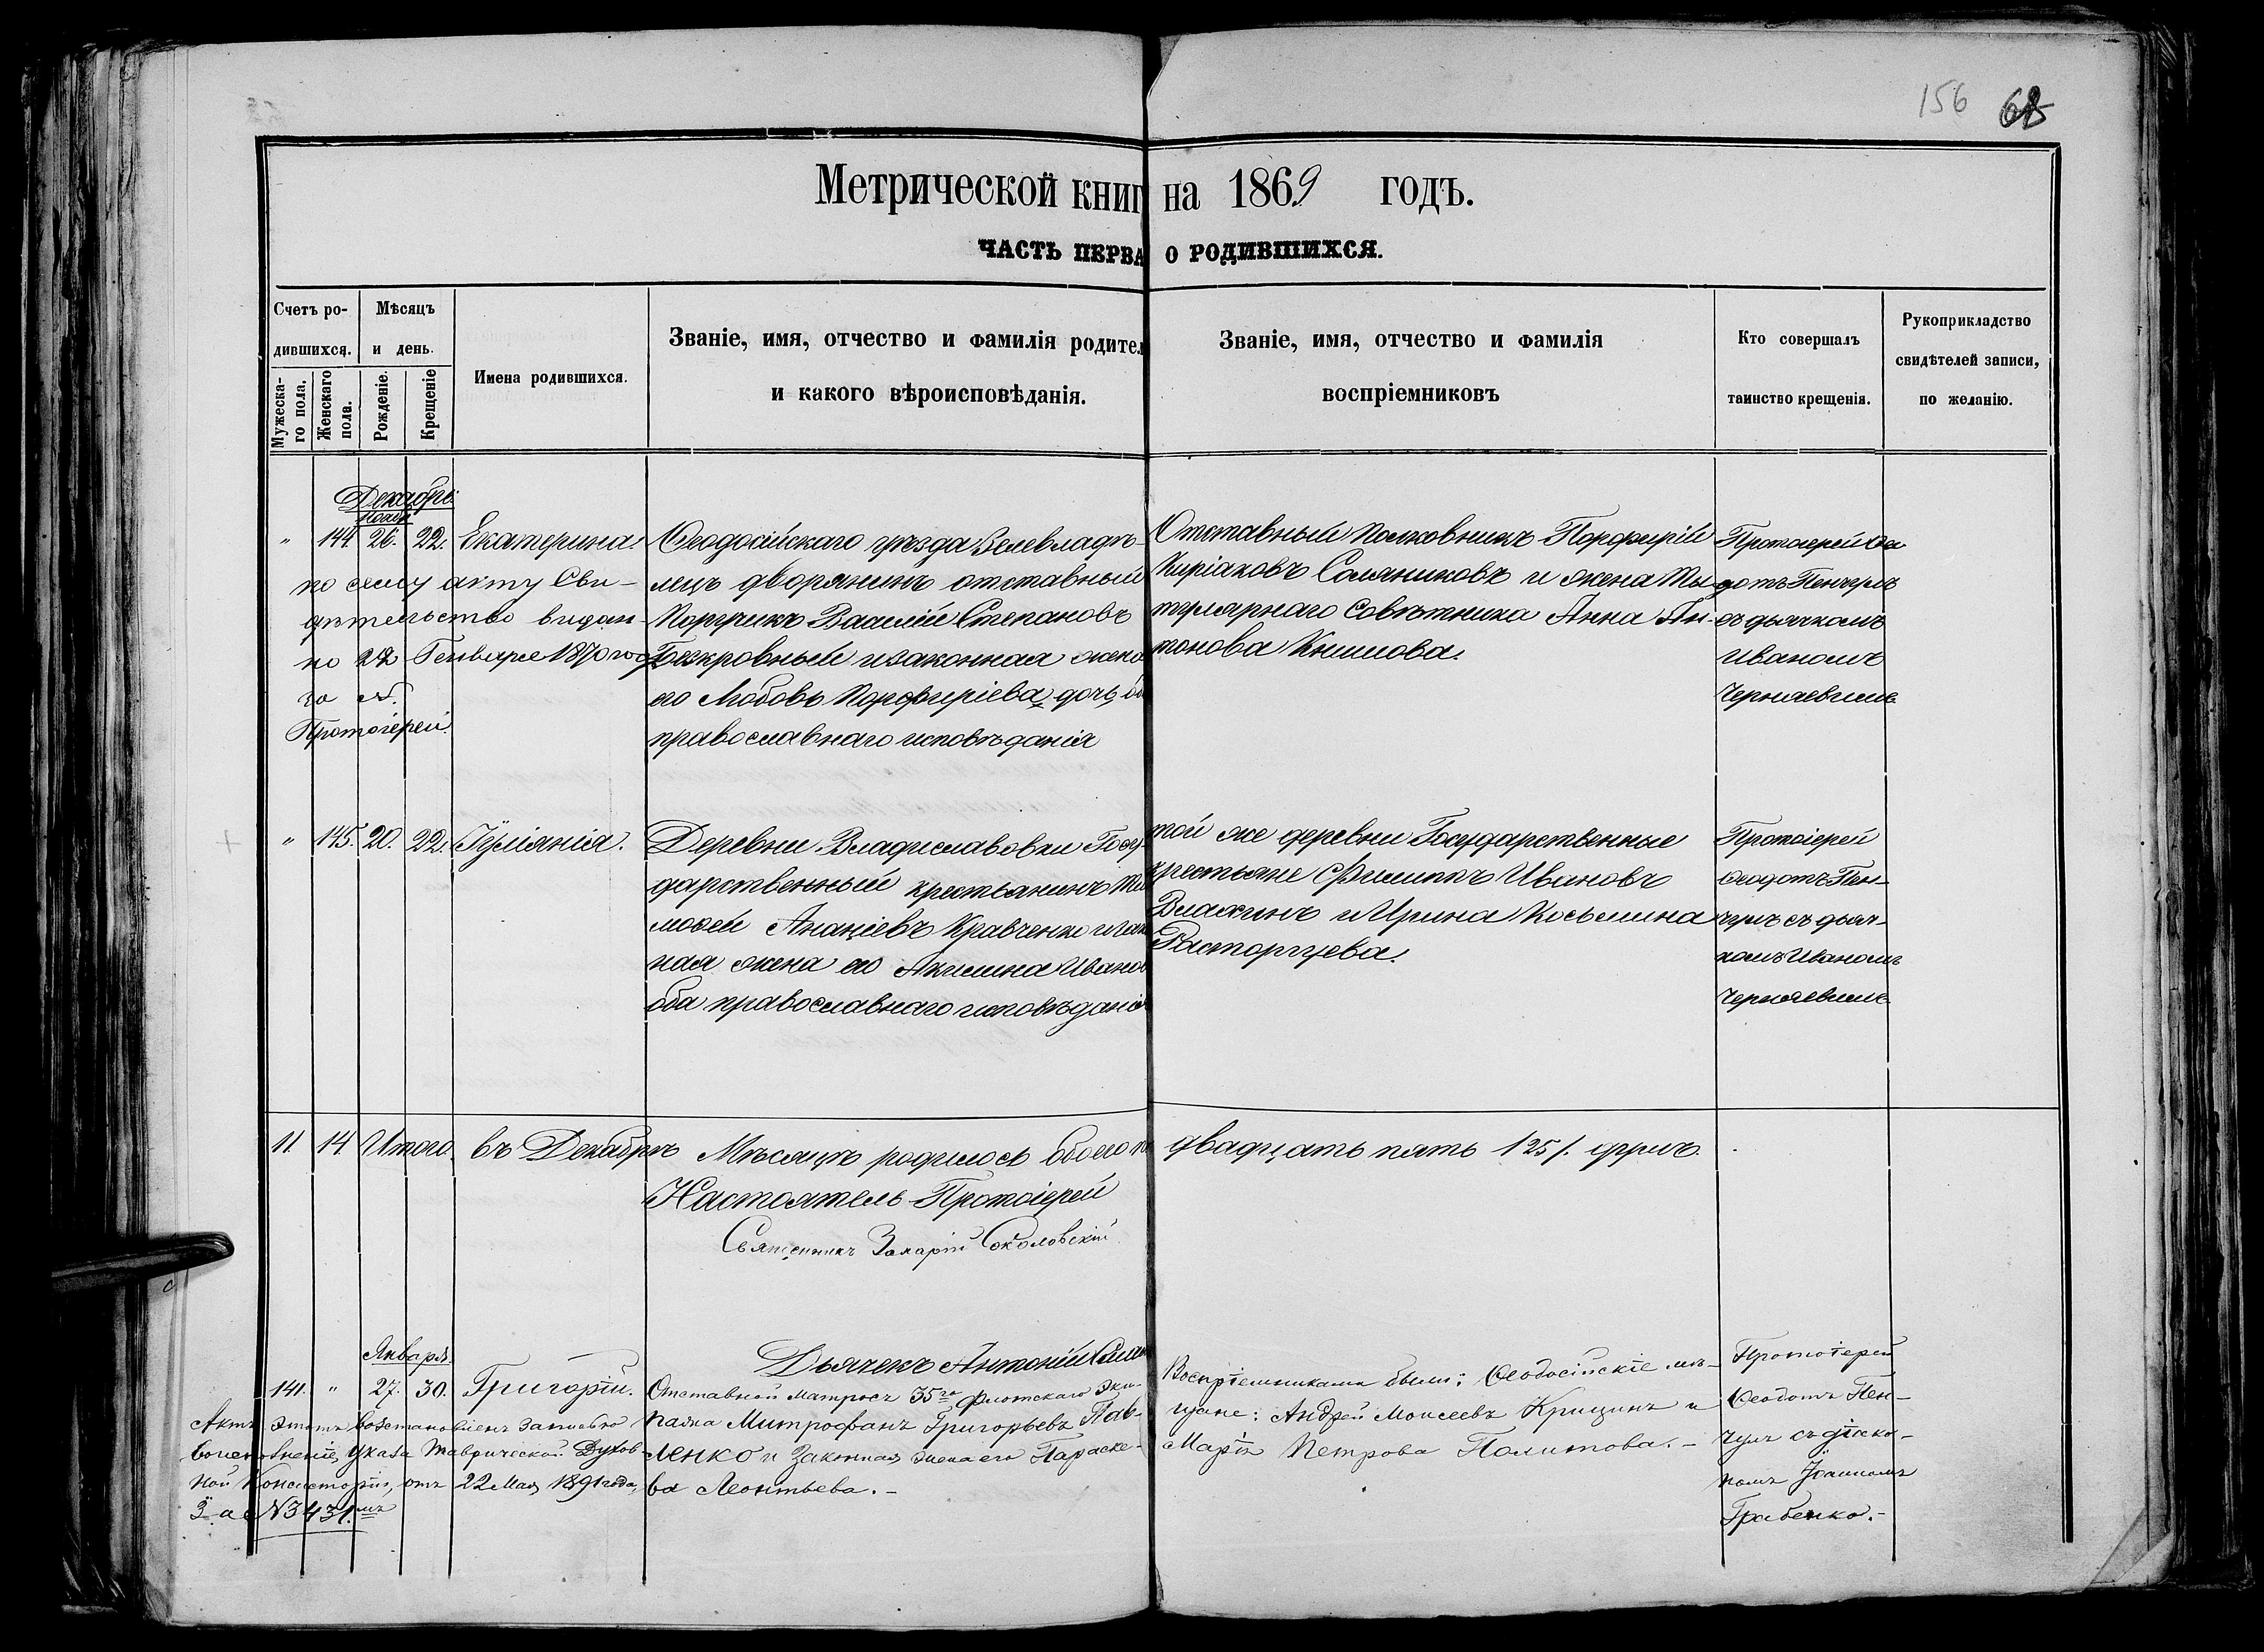 156 68
Метрической книг на 1869 годъ.
ЧАСТЬ ПЕРВА О РОДИВШИХСЯ.
Счетъ ро-
дившихся.
Мужеска-
го пола.
Женскаго
пола.
Мѣсяцъ
и день.
Рожденіе.
Крещеніе
Имена родившихся.
Званіе, имя, отчество и фамилія родител
и какого вѣроисповѣданія.
Званіе, имя, отчество и фамилія
воспріемниковъ
Кто совершалъ
таинство крещенія.
Рукоприкладство
свидѣтелей записи,
по желанію.
Декабрь
Ноябр
" 144. 26. 22. Екатерина.
по сему акту Сви-
дѣтельство выдан-
но 22 Генваря 1870 го
за №.
Протоіерей
Ѳеодосійскаго уѣзда Землевладѣ-
лецъ дворянинъ отставный
Поручикъ Василій Степановъ
Безкровный и законная жена
его Любовь Порфиріева дочь, об
православнаго исповѣданія
Отставный Полковникъ Порфирій
Киріаковъ Соляниковъ и жена Ти-
тулярнаго Совѣтника Анна Ан-
тонова
Протоіерей Ѳео
дотъ Пенчулъ
съ дьячкомъ
Иваномъ
Чернявскимъ
" 145. 20. 22. Іуліанія.
Деревни Владиславовки Госу-
дарственный крестьянинъ Ти
моѳей Ананіевъ Кравченко и зак
ная жена его Акилина Иванов
оба православнаго исповѣданія
той же деревни Государственные
крестьяне Филиппъ Ивановъ
Влажинъ и Ирина Косьмина
Расторгуева.
Протоіерей
Ѳеодотъ Пен-
чулъ съ дьяч-
комъ Иваномъ
Чернявскимъ
11. 14. Итого въ Декабрѣ Мѣсяцѣ родилось обоего п двадцать пять /25/. душъ.
Настоятель Протоіерей
Священникъ Захарій Соколовскій
Дьячекъ Антоній
Января.
141. " 27. 30. Григорій.
Актъ этотъ возстановленъ записью
во исполненіе указа Таврической Духов-
ной Консисторіи, отъ 22 Мая 1891 года,
за № 3431.мъ
Отставной матросъ 35го флотскаго эки-
пажа Митрофанъ Григорьевъ Пав-
ленко и Законная жена его Параске-
ва Леонтьева.-
Воспріемниками были: Ѳеодосійскіе мѣ-
щане: Андрей Моисеевъ Крицинъ и
Марія Петрова Политова.-
Протоіерей
Ѳеодотъ Пен-
чулъ съ діако-
номъ Іоанномъ
Грабенко.-